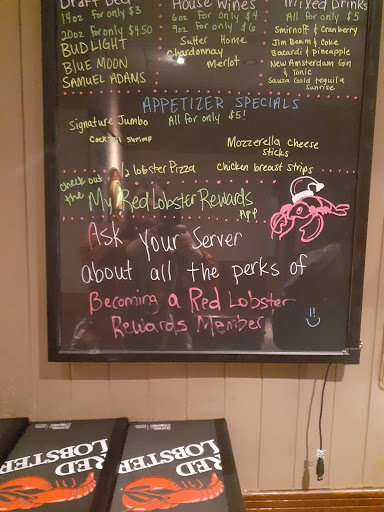 Draft Beer
14oz for only $3
20oz for only $4.50
BUD LIGHT
BLUE MOON
SAMUEL ADAMS
House Wines
6oz for only $4
9oz for only $6
Sutter Home
Chardonnay
Merlot
Mixed Drinks
All for only $5
Smirnoff & Cranberry
Jim Beam & Coke
Bacardi & pineapple
New Amsterdam Gin
& Tonic
Sauza Gold tequila
Sunrise
APPETIZER SPECIALS
All for only $5!
Signature Jumbo
Cocktail Shrimp
Mozzerella cheese
sticks
1/2 lobster Pizza
chicken breast strips
check out
the
My Red Lobster Rewards
App
Ask Your Server
about all the perks of
Becoming a Red Lobster
Rewards Member
RED
LOBSTER
RED
LOBSTER